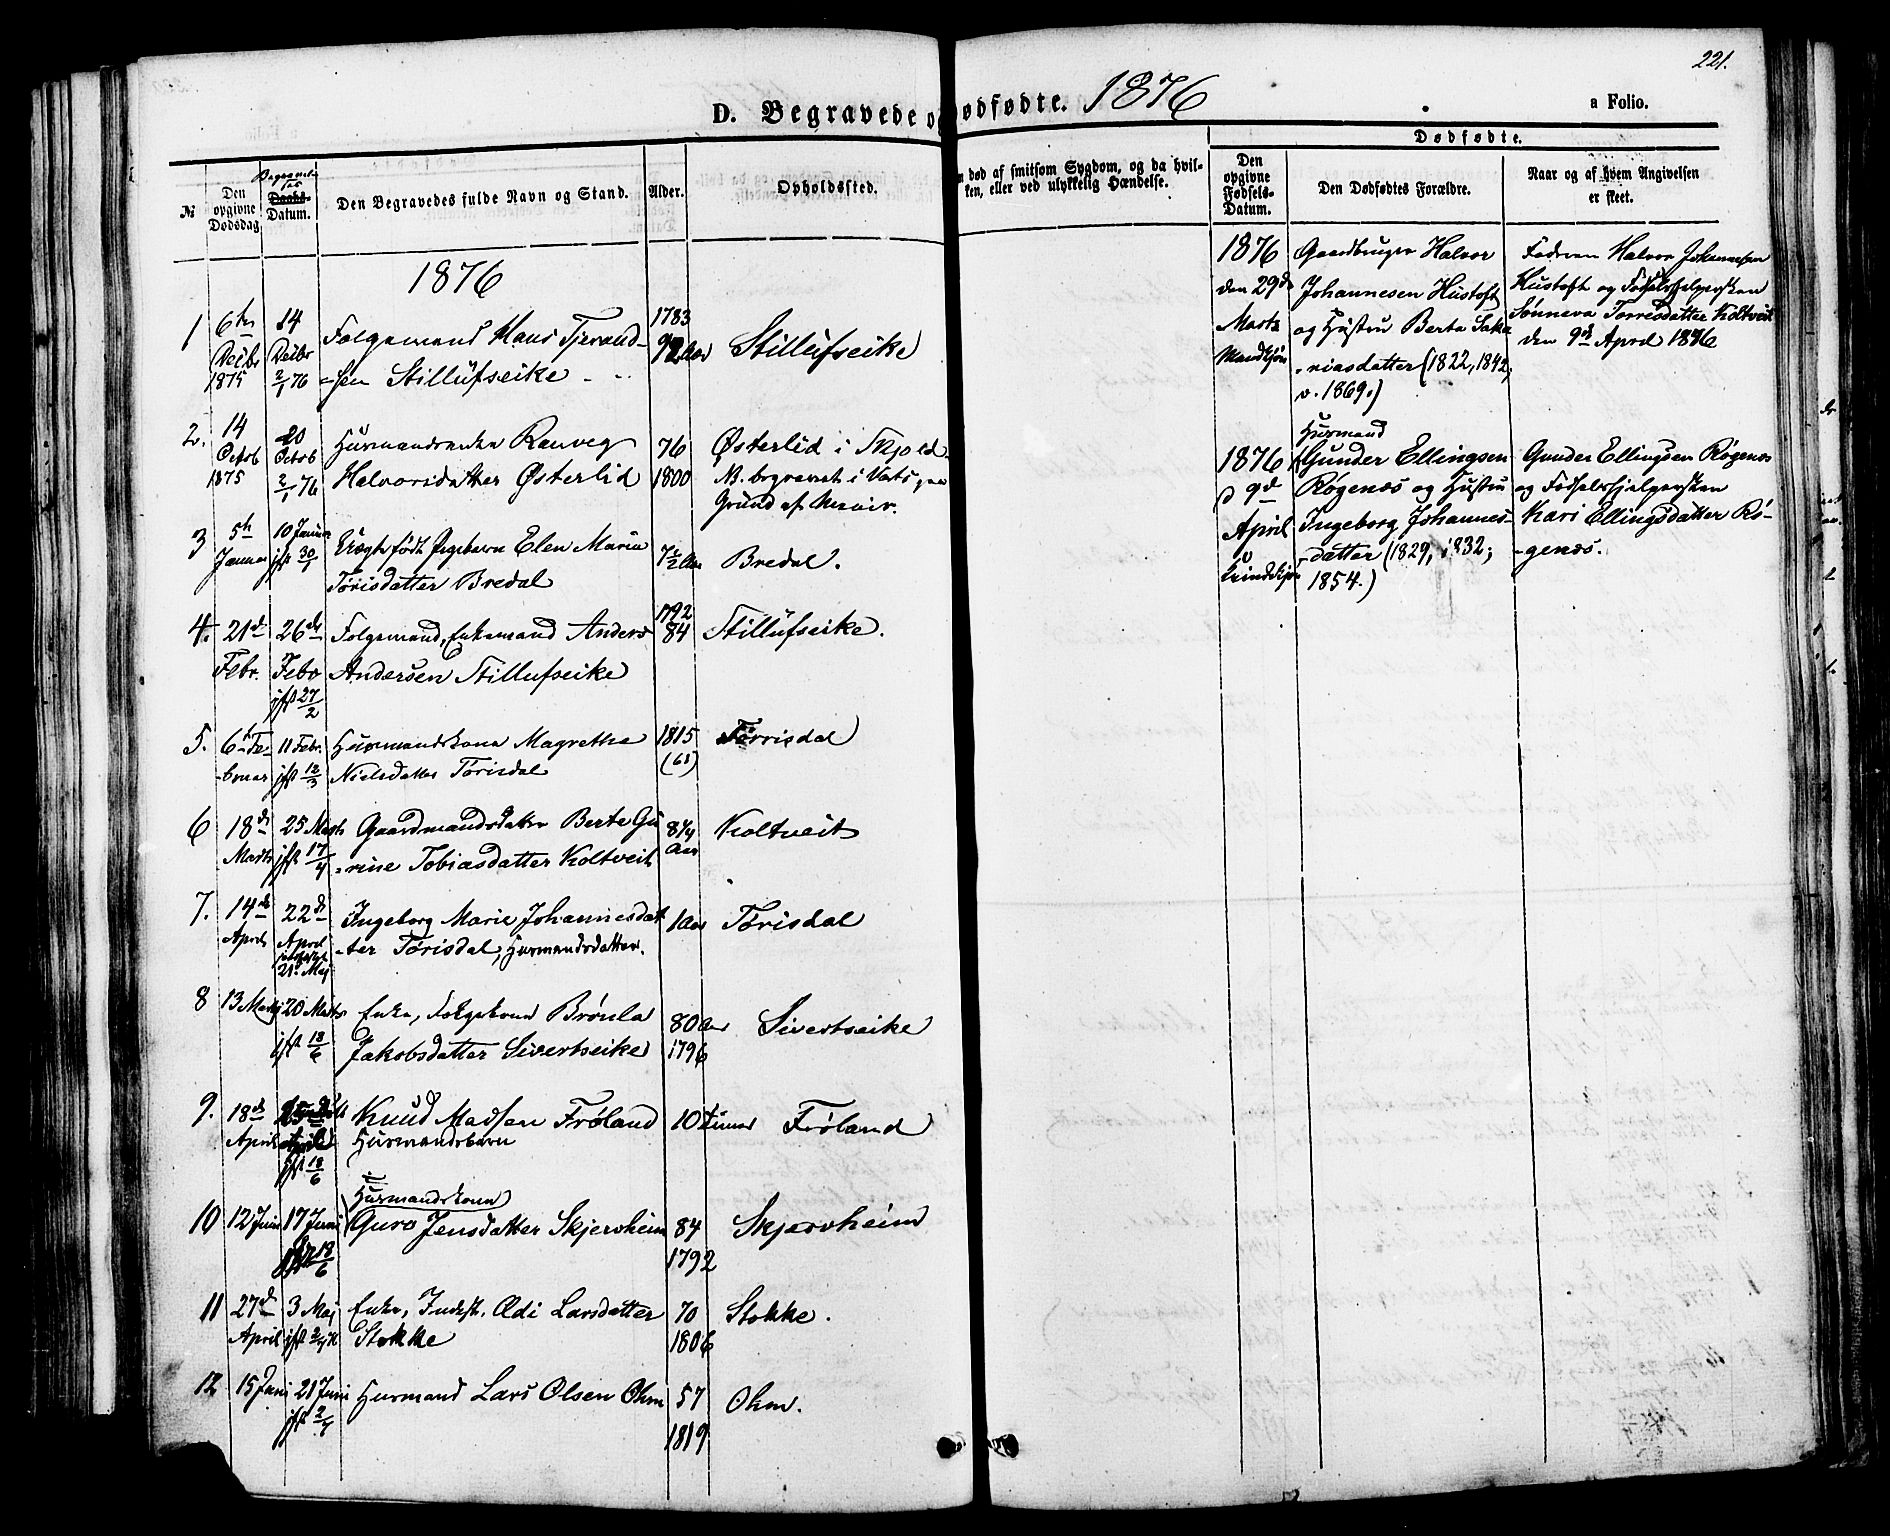 221.
D. Begravede o
ødfødte. 1876
a Folio.
Dødfødte.
№
Den opgivne Dødsdag
Begravelses
Daabs-
Datum.
Den Begravedes fulde Navn og Stand.
Alder.
Opholdssted.
n død af smitsom Sygdom, og da hvil-
ken, eller ved ulykkelig Hændelse.
Den opgivne Fødsels-Datum.
Den Dødfødtes Forældre.
Naar og af hvem Angivelsen
er skeet.
1876
1 6te 14 Folgemand Hans Tjerand- 1783 Stillufseike
1875 2/1 76 -sen Stillufseike
2. 14 20 Huusmandsenke Ranveg 76 Østerlid i Skjold
Octob Octob Halvorsdatter Østerlid 1800 NB. begravet i Vats paa
1875 2/1 76 Grund af
3 5te 10 Januar født Pigebarn Elen Marie 7½ Aar Bredal.
Januar jfst 30/1 Torisdatter Bredal
4. 21de 26de Folgemand, Enkemand Anders 1792 84 Stillufseike.
Febr. Febr Andersen Stillufseike
jfst 27/2
5. 6te Fe- 11 Febr. Huusmandskone Magrethe 1815 Torrisdal
-bruar jfst 12/3 Nielsdatter Torisdal (61)
6 18de 25 Marts Gaardmandsdatter Berte Gu Koltveit
Marts jfst 17/4 -rine Tobiasdatter Koltveit Aar
7. 14de 22de Ingeborg Marie Johannesdat 1 Aar Torisdal
April April -ter Torisdal, Huusmandsdatter.
21. Maj
8 13 Marts 20 Marts Enke, Folgekone Brønla 80 Aar Sivertseike
jfst 18/6 Jakobsdatter Sivertseike 1796
9. 18de 25de Knud Madsen Frøland 10 Timer Frøland
April April Huusmandsbarn
jfst 18/6
Huusmandskone
10 12 Juni 17 Juni Guro Jensdatter Skjerveheim 84 Skjerveheim
jfst 18/6 1792
11 27de 3 Maj Enke, Inderst. Ædi Larsdatter 70 Stokke.
April jfst Stokke 1806
12 15 Juni 21 Juni Huusmand Lars Olsen Ohm 57 Ohm.
jfst 2/7 1819
1876 Gaardbruger Halvor Faderen Halvor Johannesen
den 29de Johannesen Hustoft Hustoft og Fødselshjelpersken
Marts og Hustru Berta Saka Sønneva Torrisdatter Koltveit
Mandkjøn -riasdatter (1822, 1842, den 9de April 1876
v. 1869.)
Huusmand
1876 Gunder Ellingsen Gunder Ellingsen Røgenæs
d 9de Røgenæs og Hustru og Fødselshjelpersken
April Ingeborg Johannes- Kari Ellingsdatter Rø-
Kvindekjøn -datter (1829, 1832; -genæs.
1854.)